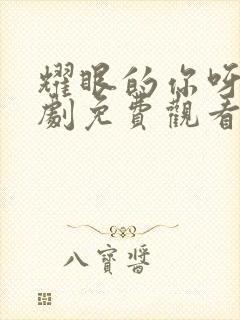 耀眼的你呀
劇免費觀看
八寶醬